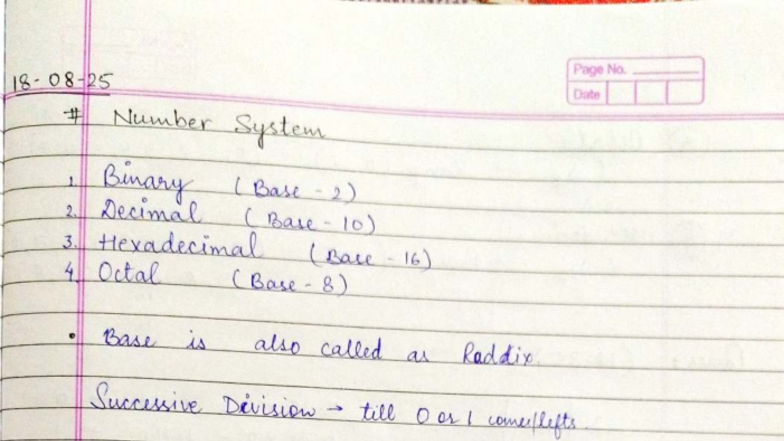 Page No.
Date
18-08-25
# Number System
1. Binary (Base - 2)
2. Decimal (Base - 10)
3. Hexadecimal (Base - 16)
4. Octal (Base - 8)
• Base is also called as Raddix.
Successive Division → till 0 or 1 comes/lefts.